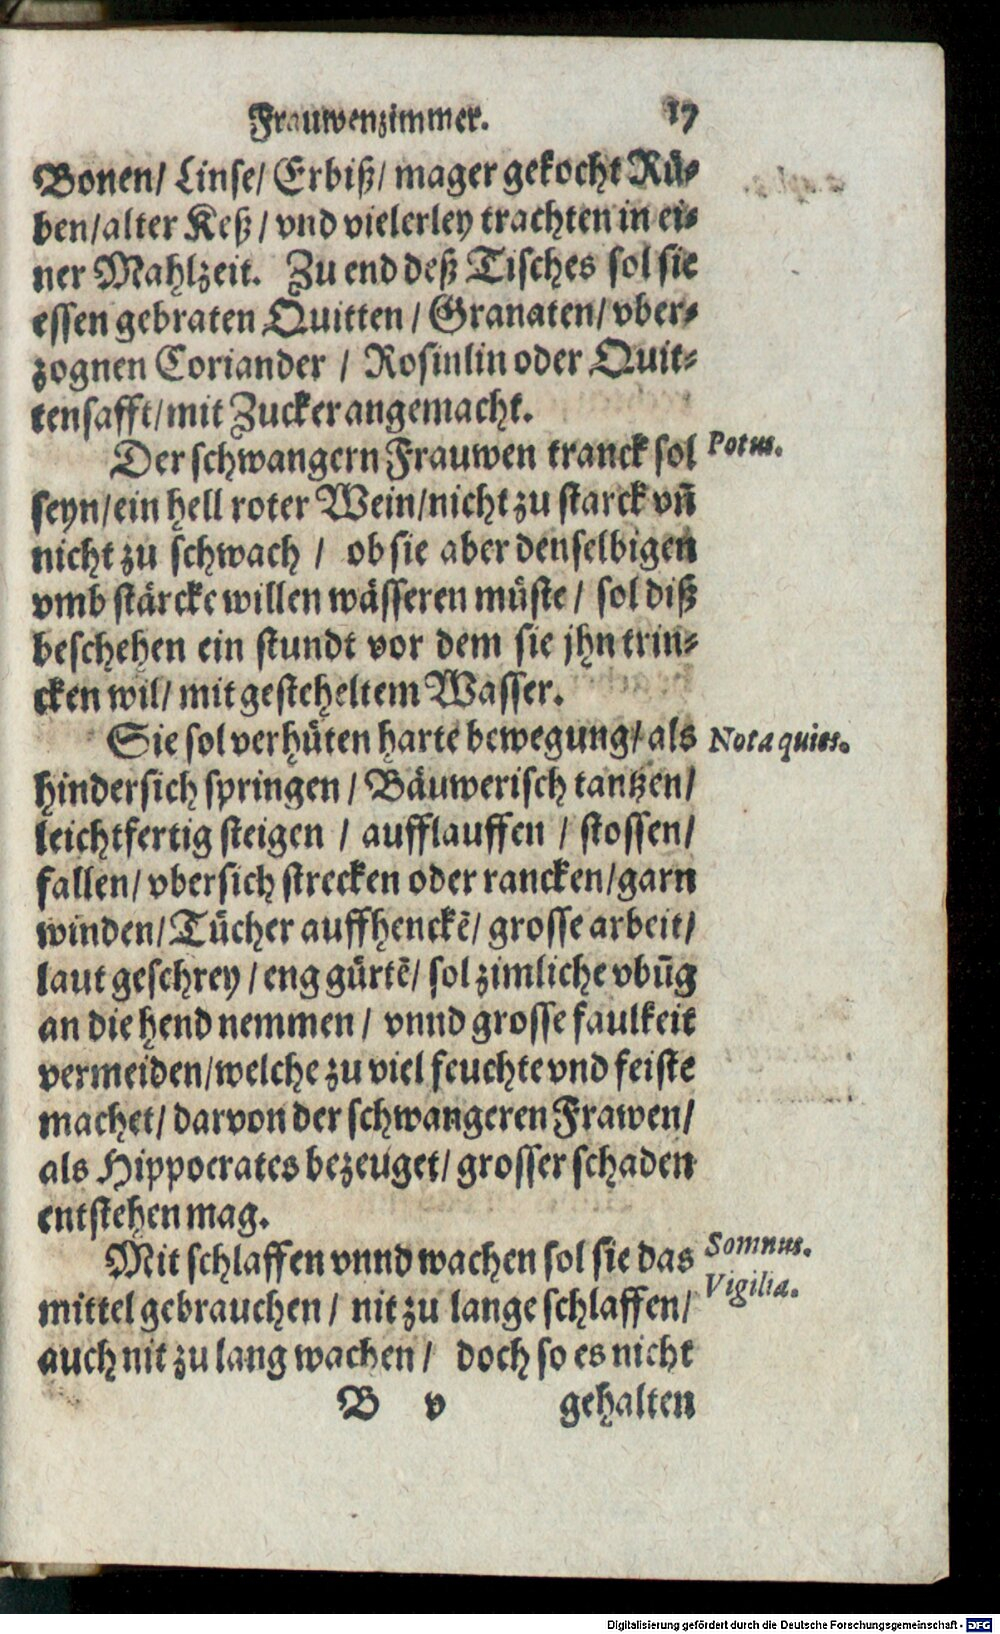 Frauwenzimmer. 17
Bonen/ Linse/ Erbiß/ mager gekocht Rü-
ben/ alter Keß/ vnd vielerley trachten in ei-
ner Mahlzeit. Zu end deß Tisches sol sie
essen gebraten Quitten/ Granaten/ vber-
zognen Coriander/ Rosinlin oder Quit-
tensafft/ mit Zucker angemacht.
Der schwangern Frauwen tranck sol Potus.
seyn/ ein hell roter Wein/ nicht zu starck vñ
nicht zu schwach/ ob sie aber denselbigen
vmb stärcke willen wässeren müste/ sol diß
beschehen ein stundt vor dem sie jhn trin-
cken wil/ mit gesteheltem Wasser.
Sie sol verhüten harte bewegung/ als Nota quies.
hindersich springen/ Bäuwerisch tantzen/
leichtfertig steigen/ aufflauffen/ stossen/
fallen/ vbersich strecken oder rancken/ garn
winden/ Tücher auffhenckē/ grosse arbeit/
laut geschrey/ eng gürtē/ sol zimliche vbūg
an die hend nemmen/ vnnd grosse faulkeit
vermeiden/ welche zu viel feuchte vnd feiste
machet/ darvon der schwangeren Frawen/
als Hippocrates bezeuget/ grosser schaden
entstehen mag.
Mit schlaffen vnnd wachen sol sie das Somnus.
mittel gebrauchen/ nit zu lange schlaffen/ Vigilia.
auch nit zu lang wachen/ doch so es nicht
B v gehalten
Digitalisierung gefördert durch die Deutsche Forschungsgemeinschaft - DFG